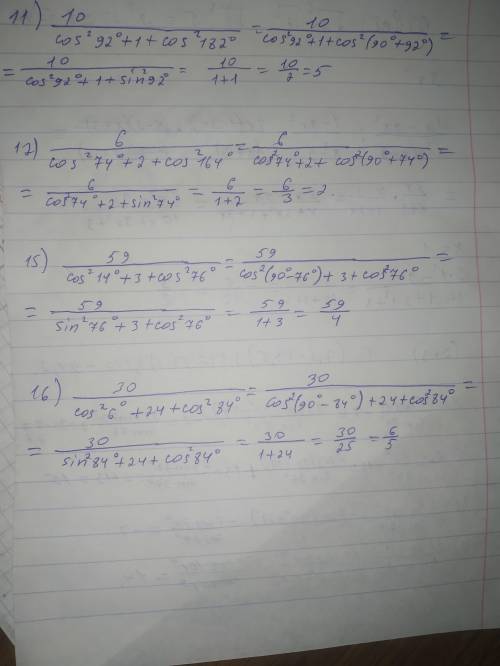 11) 10/(cos²92°+1+cos²182°) = 10/(cos²92°+1+cos²(90°+92°)) =
= 10/(cos²92°+1+sin²92°) = 10/(1+1) = 10/2 = 5
12) 6/(cos²74°+2+cos²164°) = 6/(cos²74°+2+cos²(90°+74°)) =
= 6/(cos²74°+2+sin²74°) = 6/(1+2) = 6/3 = 2
15) 59/(cos²14°+3+cos²76°) = 59/(cos²(90°-76°)+3+cos²76°) =
= 59/(sin²76°+3+cos²76°) = 59/(1+3) = 59/4
16) 30/(cos²6°+24+cos²84°) = 30/(cos²(90°-84°)+24+cos²84°) =
= 30/(sin²84°+24+cos²84°) = 30/(1+24) = 30/25 = 6/5